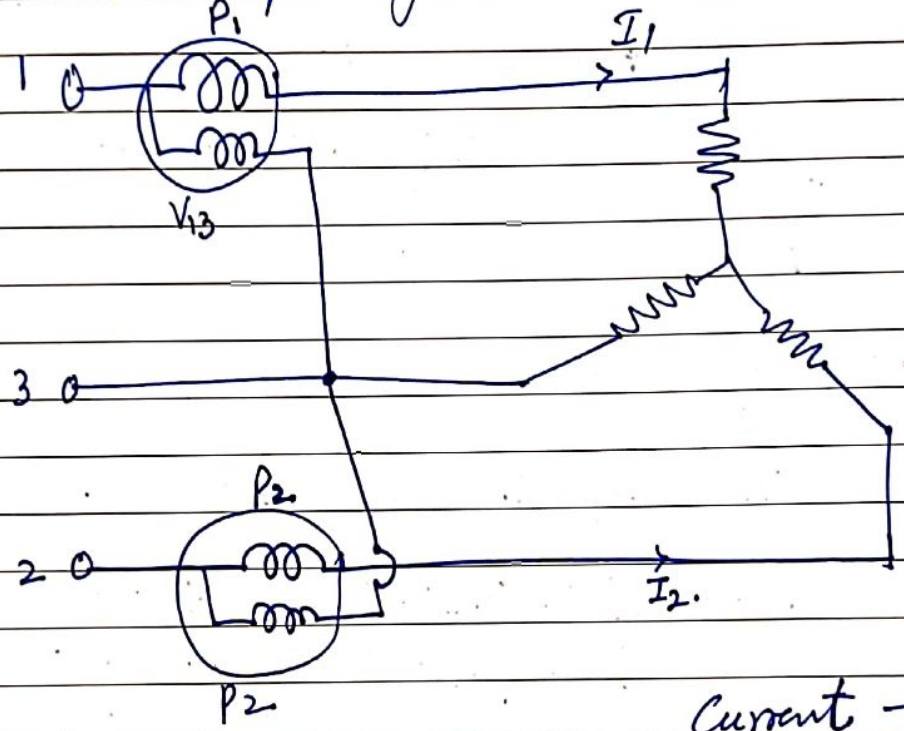 P1
I1
1
V13
3
P2.
2
I2.
P2
Current -